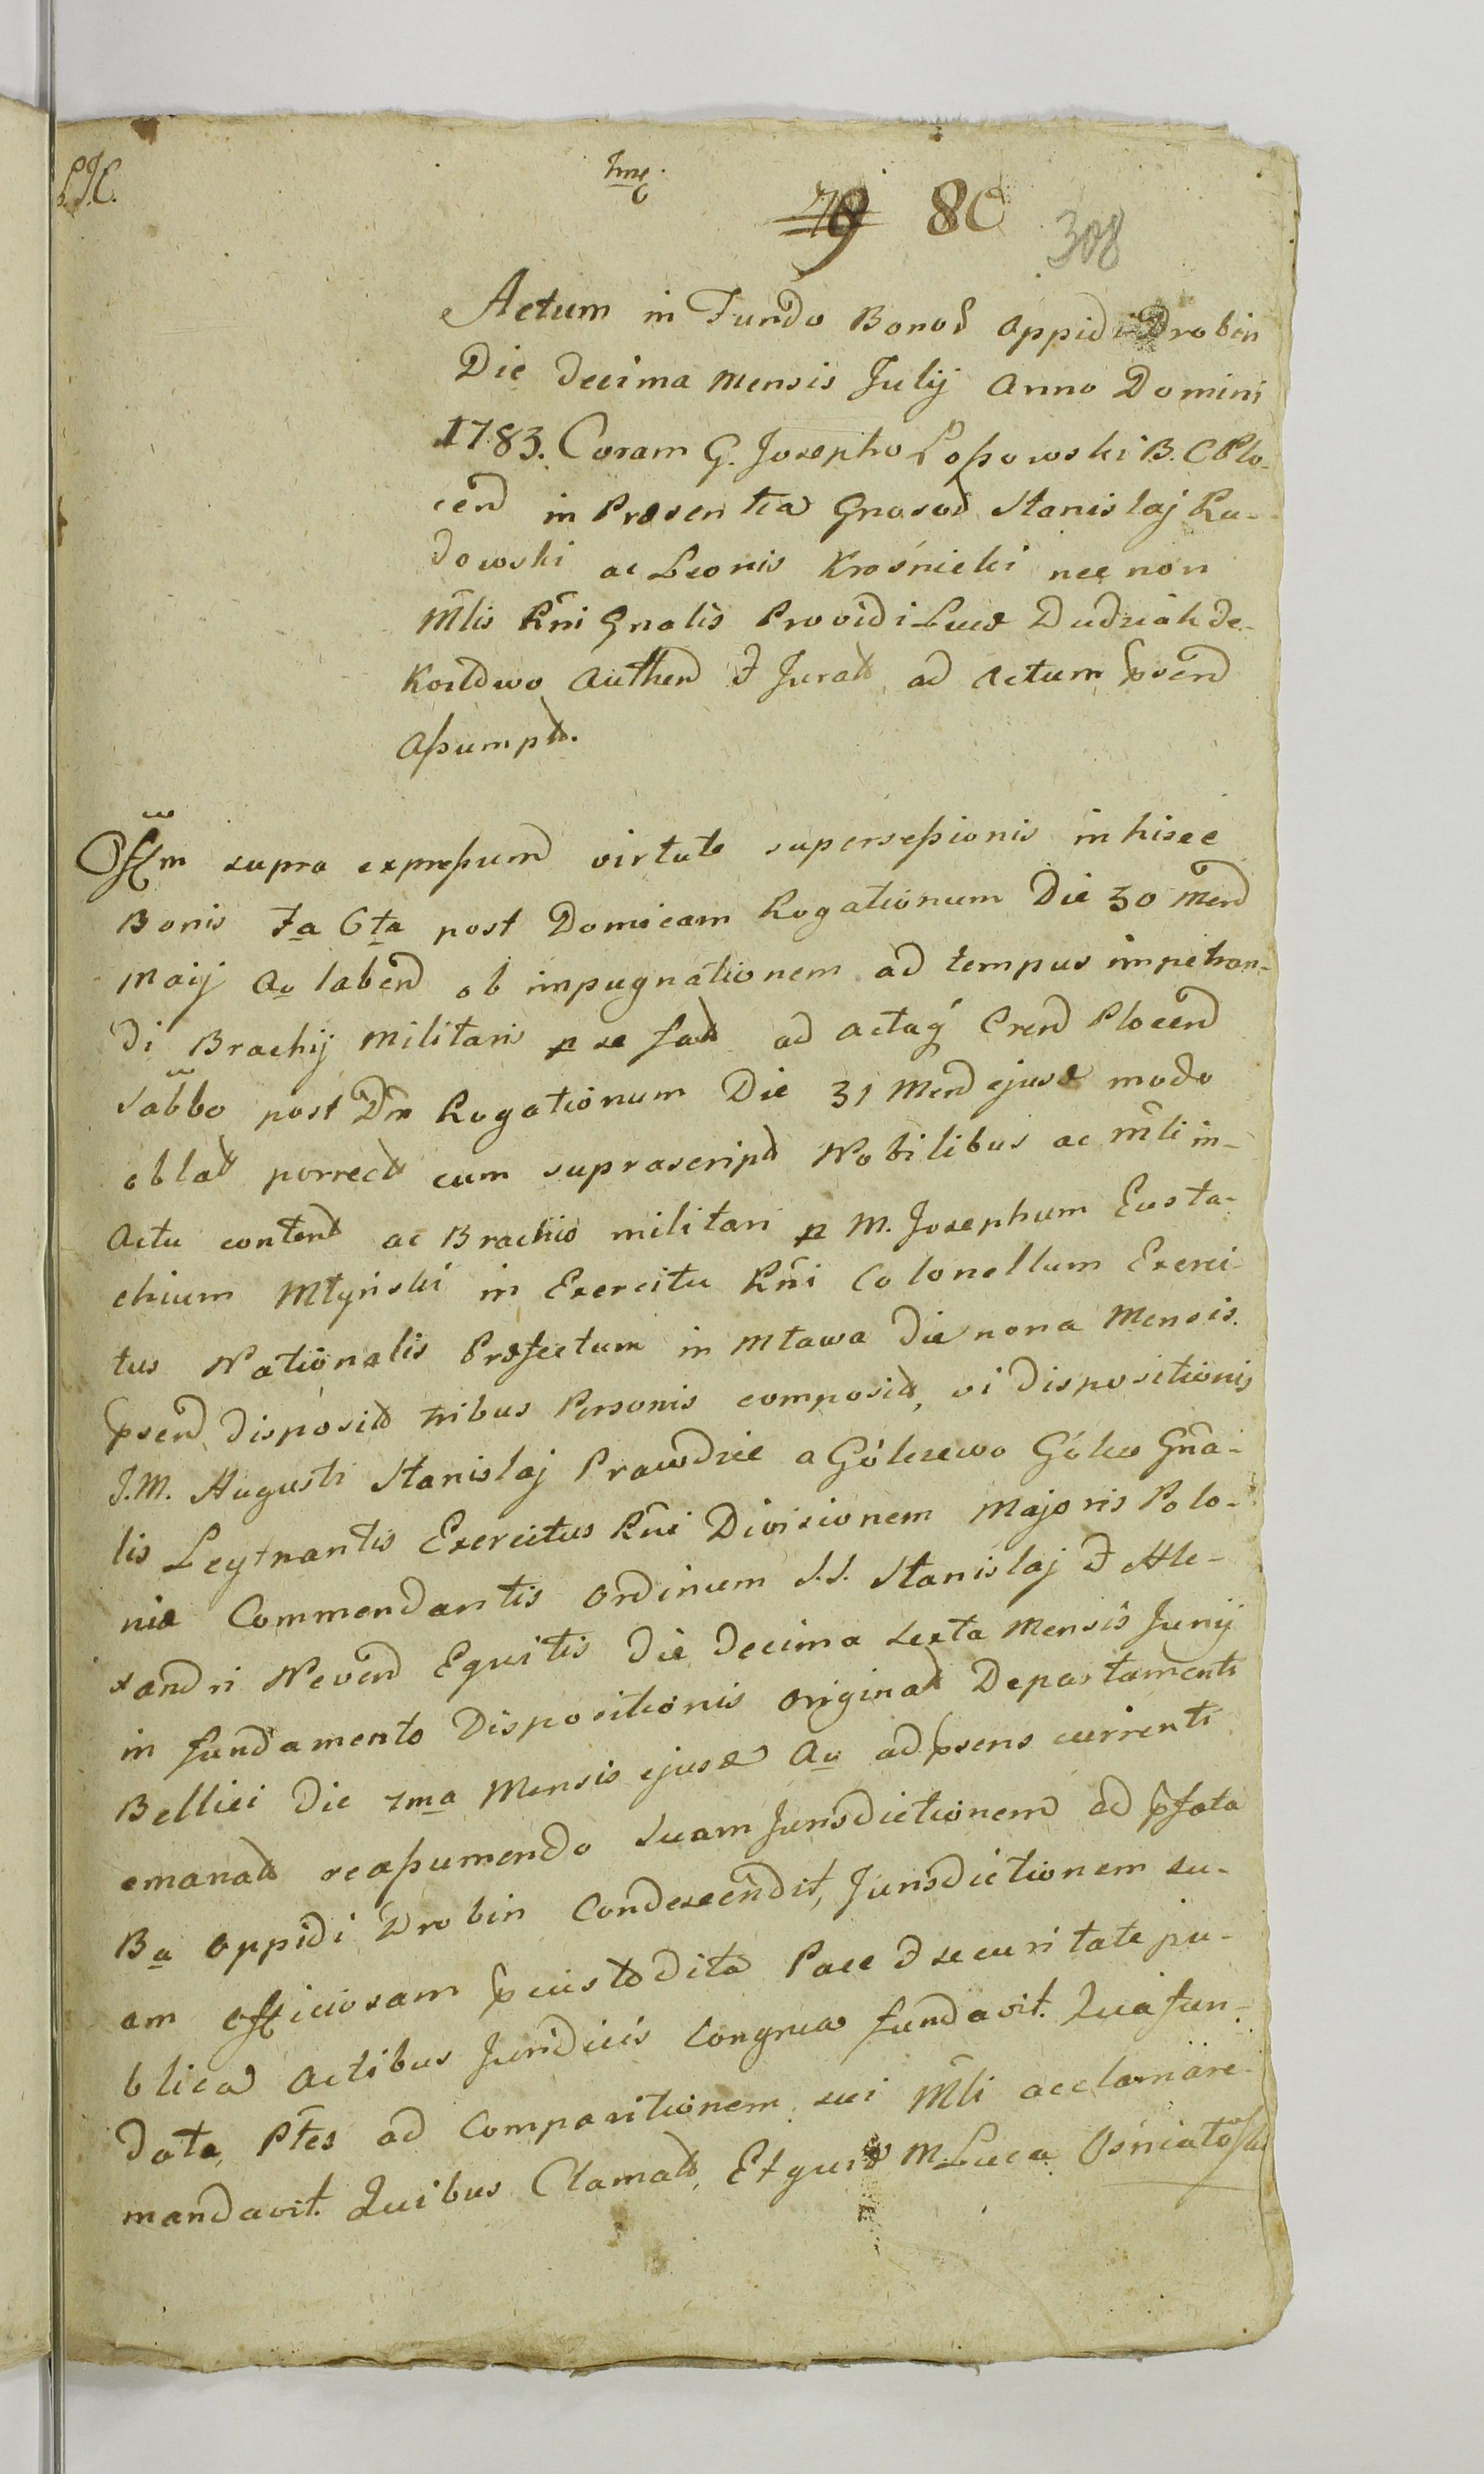 79 80 308
Actum in Fundo Bonor Oppidi Drobin
Die decima Mensis Julij Anno Domini
1783. Coram G. Josepho Łoßowski B. C Plo-
cen in Præsentia Gnosor Stanislaj Ru-
dowski ac Leonis Krośnicki nec non
Mlis Rni Gnalis Providi Lucæ Dudziak de
Authen & Jurat ad Actum psen
Aßumpt.
Offm supra expreßum virtute superseßionis in hisce
Bonis Fa 6ta post Domicam Rogationum Die 30 Men
Maij Ao laben ob impugnationem ad tempus impetran-
di Brachij Militaris p se fat ad acta Cren Plocen
Sabbo post Dm Rogationum Die 31 Men ejusd modo
oblat porrect cum suprascript Nobilibus ac Mli in
Actu content ac Brachio militari p M. Josephum Eusta-
chium Młyński in Exercitu Rni Colonellum Exerci-
tus Nationalis Præfectum in Mława die nona Mensis
psen disposit tribus Personis composit, vi dispositionis
J.M. Augusti Stanislaj Prawdzic a Gólczewo Gólcz Gna-
lis Leytnantis Exercitus Rni Divisionem Majoris Polo-
niæ Commendantis Ordinum S.S. Stanislaj & Ale-
xandri Neven Equitis die decima sexta Mensis Junij
in fundamento Dispositionis Originat Departamenti
Bellici die 7ma Mensis ejusd Ao ad psens currenti
emanat reaßumendo suam Jurisdictionem ad pfata
Ba Oppidi Drobin Condescendit, Jurisdictionem su-
am Officiosam pcustodita Pace & securitate pu-
blica Actibus Juridicis congrua fundavit. Qua fun-
data, Ptes ad Comparitionem sui Mli acclamare
mandavit. Quibus Clamat, Et M. Luca Ośniałoski